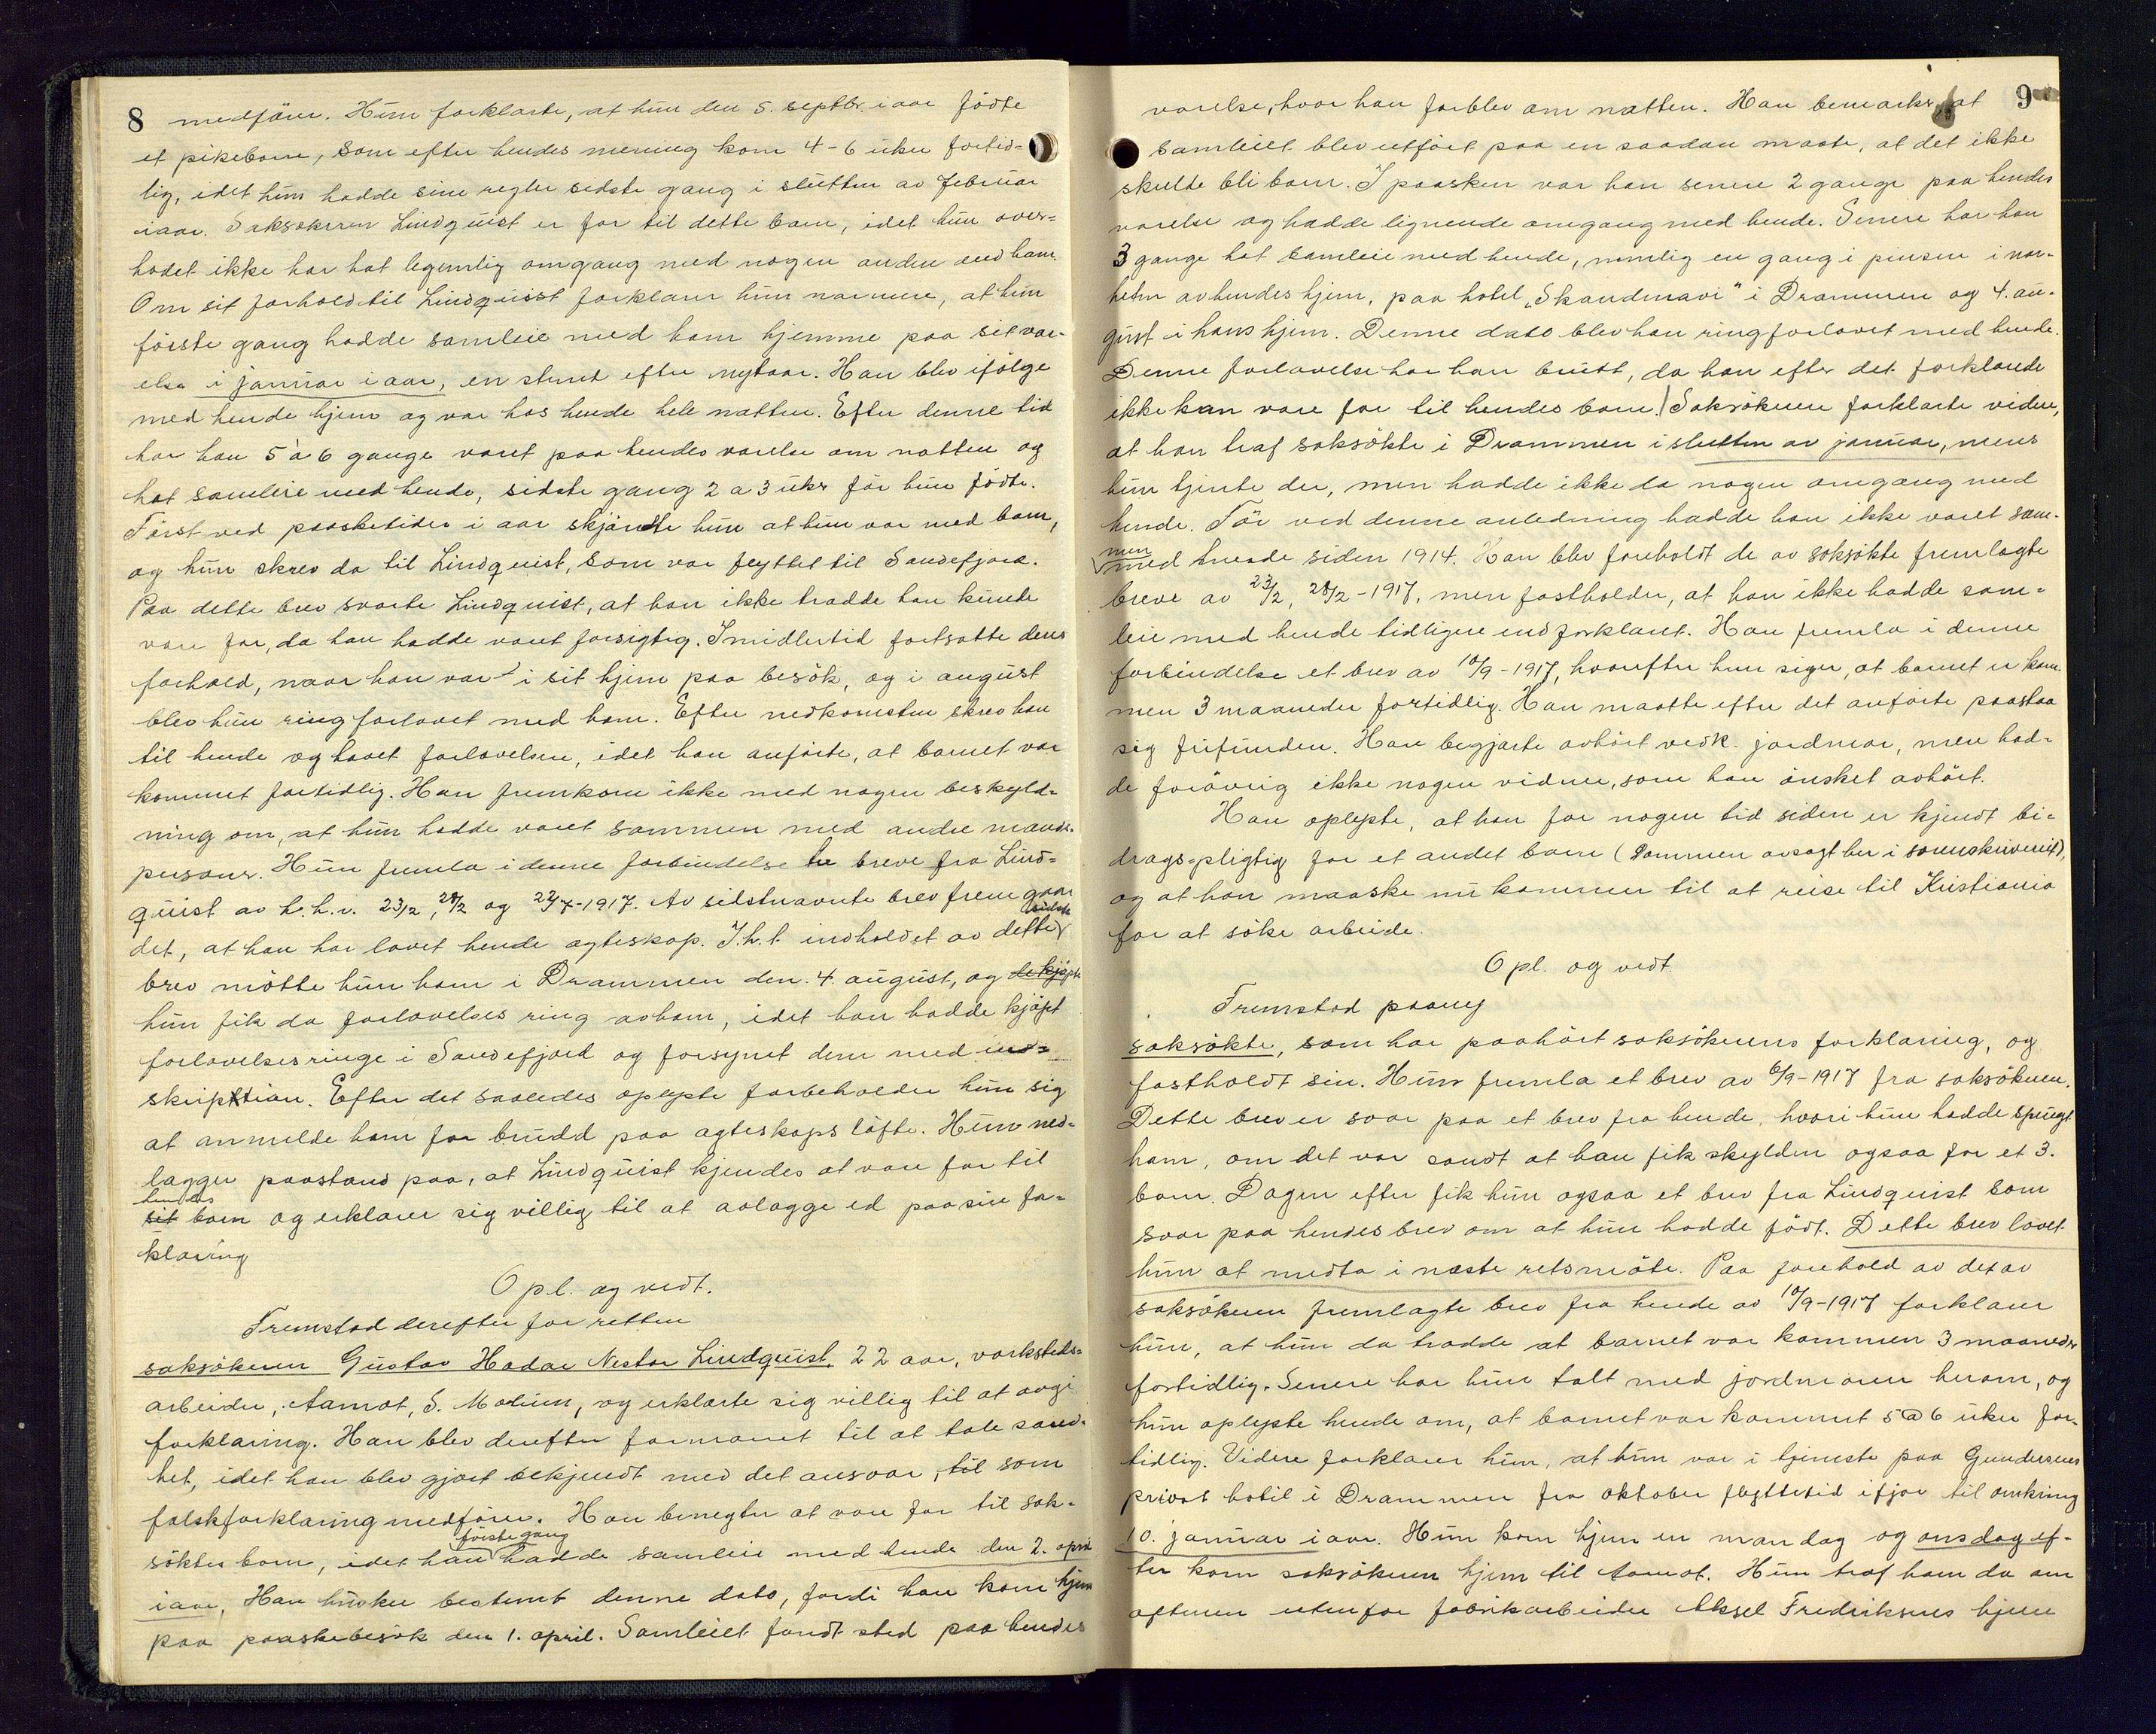 8
medfører. Hun forklarte, at hun den 5. septbr. i aar fødte
et pikebarn, som efter hendes mening kom 4-6 uker fortid=
lig, idet hun hadde sine regler sidste gang i slutten av februar
iaar. Saksøkeren Lindquist er far til dette barn, idet hun over=
hodet ikke har hat legemlig omgang med nogen anden end ham.
Om sit forhold til Lindquist forklarer hun nærmere, at hun
første gang hadde samleie med ham hjemme paa sit vær-
else i januar i aar, en stund efter nytaar. Han blev ifølge
med hende hjem og var hos hende hele natten. Efter denne tid
har han 5 à 6 gange været paa hendes værelse om natten og
hat samleie med hende, sidste gang 2 a 3 uker før hun fødte.
Først ved paasketider i aar skjønte hun at hun var med barn,
og hun skrev da til Lindquist, som var flyttet til Sandefjord.
Paa dette brev svarte Lindquist, at han ikke trodde han kunde
være far, da han hadde været forsigtig. Imidlertid fortsatte deres
forhold, naar han var i sit hjem paa besøk, og i august
blev hun ringforlovet med ham. Efter nedkomsten skrev han
til hende og hævet forlovelsen, idet han anførte, at barnet var
kommet fortidlig. Han fremkom ikke med nogen beskyld=
ning om, at hun hadde været sammen med andre mands-
personer. Hun fremla i denne forbindelse tre breve fra Lind=
quist av h.h.v. 23/2, 28/2 og 22/7-1917. Av sidstnævnte brev fremgaar
det, at han har lovet hende egteskap. I.h.t. indholdet av dette sidste
brev møtte hun ham i Drammen den 4. august, og de kjøpte
hun fik da forlovelsesring av ham, idet han hadde kjøpt
forlovelsesringe i Sandefjord og forsynet dem med ind=
skription. Efter det saaledes oplyste forbeholder hun sig
at anmelde ham for brudd paa egteskapsløfte. Hun ned=
lægger paastand paa, at Lindquist kjendes at være far til
hendes
sit barn og erklærer sig villig til at avlægge ed paa sin for=
klaring
Opl. og vedt.
Fremstod derefter for retten
saksøkeren Gustav Hadar Nestor Lindquist, 22 aar, verksteds=
arbeider, Aamot, S. Modum, og erklærte sig villig til at avgi
forklaring. Han blev derefter formanet til at tale sand=
het, idet han blev gjort bekjendt med det ansvar, til som
falsk forklaring medfører. Han benegter at være far til sak=
første gang
søktes barn, idet han hadde samleie med hende den 2. april
iaar. Han husker bestemt denne dato, fordi han kom hjem
paa paaskebesøk den 1. april. Samleiet fandt sted paa hendes
9
værelse, hvor han forblev om natten. Han bemærker, at
samleiet blev utført paa en saadan maate, at det ikke
skulde bli barn. I paasken var han senere 2 gange paa hendes
værelse og hadde lignende omgang med hende. Senere har han
3 gange hat samleie med hende, nemlig en gang i pinsen i nær-
heten av hendes hjem, paa hotel "Skandinavi" i Drammen og 4. au-
gust i hans hjem. Denne dato blev han ringforlovet med hende.
Denne forlovelse har han brutt, da han efter det forklarede
ikke kan være far til hendes barn. Saksøkeren forklarte videre,
at han traf saksøkte i Drammen i slutten av januar, mens
hun tjente der, men hadde ikke da nogen omgang med
hende. Før ved denne anledning hadde han ikke været sam-
men
med hende siden 1914. Han blev foreholdt de av saksøkte fremlagte
breve av 23/2, 28/2-1917, men fastholder, at han ikke hadde sam=
leie med hende tidligere end forklaret. Han fremla i denne
forbindelse et brev av 10/9-1917, hvorefter hun siger, at barnet er kom-
men 3 maaneder fortidlig. Han maatte efter det anførte paastaa
sig frifunden. Han begjærte avhørt vedk. jordmor, men had=
de forøvrig ikke nogen vidner, som han ønsket avhørt.
Han oplyste, at han for nogen tid siden er kjendt bi=
drags=pligtig for et andet barn (Dommen avsagt her i sorenskriveriet),
og at han maaske nu kommer til at reise til Kristiania
for at søke arbeide.
Opl. og vedt.
Fremstod paany
saksøkte, som har paahørt saksøkerens forklaring, og
fastholdt sin. Hun fremla et brev av 6/9-1917 fra saksøkeren.
Dette brev er svar paa et brev fra hende, hvori hun hadde spurgt
ham, om det var sandt at han fik skylden ogsaa for et 3.
barn. Dagen efter fik hun ogsaa et brev fra Lindquist som
svar paa hendes brev om at hun hadde født. Dette brev lovet
hun at medta i næste retsmøte. Paa forehold av det av
saksøkeren fremlagte brev fra hende av 10/9-1917 forklarer
hun, at hun da trodde at barnet var kommen 3 maaneder
fortidlig. Senere har hun talt med jordmoren herom, og
hun oplyste hende om, at barnet var kommet 5 a 6 uker for-
tidlig. Videre forklarer hun, at hun var i tjeneste paa Gundersens
privat hotel i Drammen fra oktober flyttetid ifjor til omkring
10. januar iaar. Hun kom hjem en mandag og onsdag ef-
ter kom saksøkeren hjem til Aamot. Hun traf ham da om
aftenen utenfor fabrikarbeider Aksel Fredriksens hjem